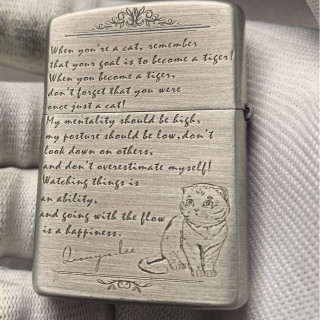 When you're a cat, remember
that your goal is to become a tiger!
When you become a tiger,
don't forget that you were
once just a cat!
My mentality should be high,
my posture should be low,don't
look down on others,
and don't overestimate myself!
Watching things is
an ability,
and going with the flow
is a happiness.